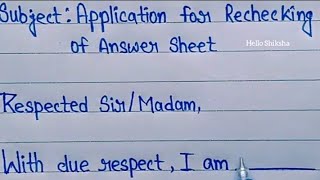 Subject: Application for Rechecking
of Answer Sheet
Hello Shiksha
Respected Sir/Madam,
With due respect, I am ______